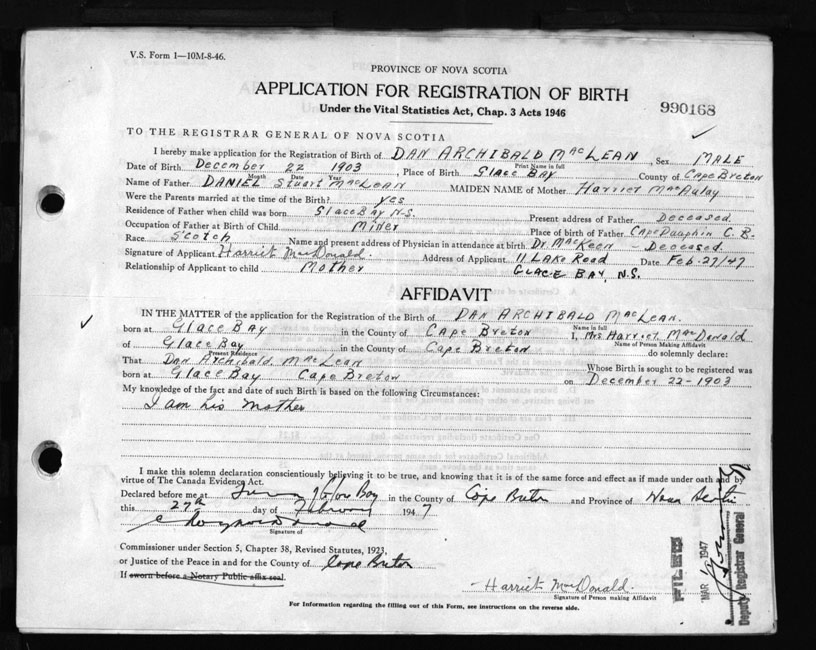 V.S. Form 1—10M-8-46.
PROVINCE OF NOVA SCOTIA
APPLICATION FOR REGISTRATION OF BIRTH
Under the Vital Statistics Act, Chap. 3 Acts 1946
990168
TO THE REGISTRAR GENERAL OF NOVA SCOTIA
I hereby make application for the Registration of Birth of DAN ARCHIBALD MacLEAN, Sex MALE
Print Name in full
Date of Birth December 22 1903, Place of Birth Glace Bay County of Cape Breton
Month Date Year
Name of Father DANIEL Stuart MacLEAN MAIDEN NAME of Mother Harriet MacAulay
Were the Parents married at the time of the Birth? yes
Residence of Father when child was born Glace Bay N.S. Present address of Father Deceased
Occupation of Father at Birth of Child Miner Place of birth of Father Cape Dauphin C.B.
Race Scotch Name and present address of Physician in attendance at birth Dr. MacKeen - Deceased.
Signature of Applicant Harriet MacDonald. Address of Applicant 11 Lake Road Date Feb-27/47
Relationship of Applicant to child Mother GLACE BAY, N.S.
AFFIDAVIT
IN THE MATTER of the application for the Registration of the Birth of DAN ARCHIBALD MacLEAN.
Name in full
born at Glace Bay in the County of Cape Breton I, Mrs Harriet MacDonald
Name of Person Making Affidavit
of Glace Bay in the County of Cape Breton do solemnly declare:
Present Residence
That Dan Archibald MacLean Whose Birth is sought to be registered was
born at Glace Bay Cape Breton on December 22-1903
My knowledge of the fact and date of such Birth is based on the following Circumstances:
I am his mother
I make this solemn declaration conscientiously believing it to be true, and knowing that it is of the same force and effect as if made under oath and by
virtue of The Canada Evidence Act.
Declared before me at Glace Bay in the County of Cape Breton and Province of Nova Scotia
this 27th day of February 1947
Signature of
Commissioner under Section 5, Chapter 38, Revised Statutes, 1923,
or Justice of the Peace in and for the County of Cape Breton
If sworn before a Notary Public affix seal.
Harriet MacDonald.
Signature of Person making Affidavit
For Information regarding the filling out of this Form, see instructions on the reverse side.
FILED
MAR 1947
Deputy Registrar General